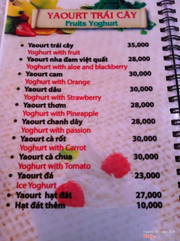 YAOURT TRÁI CÂY
Fruits Yoghurt
• Yaourt trái cây 35,000
Yoghurt with fruit
• Yaourt nha đam việt quất 28,000
Yoghurt with aloe and blackberry
• Yaourt cam 30,000
Yoghurt with Orange
• Yaourt dâu 30,000
Yoghurt with Strawberry
• Yaourt thơm 28,000
Yoghurt with Pineapple
• Yaourt chanh dây 28,000
Yoghurt with passion
• Yaourt cà rốt 30,000
Yoghurt with Carrot
• Yaourt cà chua 30,000
Yoghurt with Tomato
• Yaourt đá 23,000
Ice Yoghurt
• Yaourt hạt dát 27,000
• Hạt dát thêm 10,000